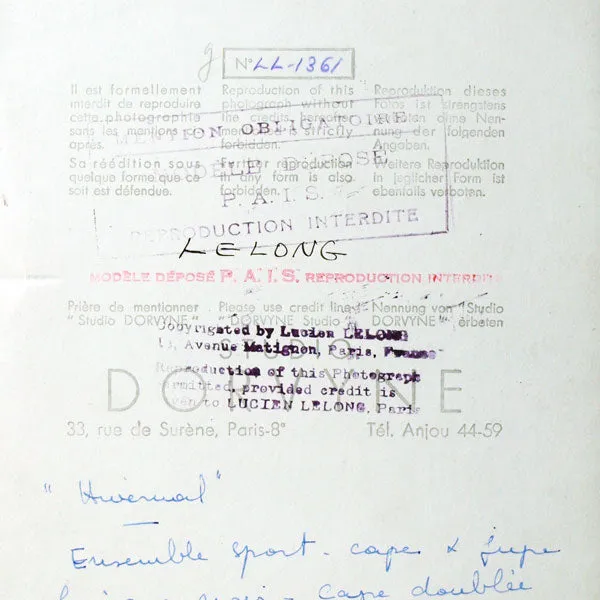 g
N° LL-1361
Il est formellement
interdit de reproduire
cette photographie
sans les mentions ci-
après.
Sa réédition sous
quelque forme que ce
soit est défendue.
Reproduction of this
photograph without
the credit hereafter
mentioned is strictly
forbidden.
Further reproduction
in any form is also
forbidden.
Reproduktion dieses
Fotos ist strengstens
verboten ohne Nen-
nung der folgenden
Angaben.
Weitere Reproduktion
in jeglicher Form ist
ebenfalls verboten.
MENTION OBLIGATOIRE
MODELE DEPOSE
P. A. I. S.
REPRODUCTION INTERDITE
LELONG
MODÈLE DÉPOSÉ P. A. I. S. REPRODUCTION INTERDITE
Prière de mentionner
"Studio DORVYNE"
Please use credit line
"DORVYNE Studio"
Nennung von "Studio
DORVYNE" erbeten
Copyrighted by Lucien LELONG
Avenue Matignon, Paris, France
Reproduction of this Photograph
permitted, provided credit is
given to LUCIEN LELONG, Paris
STUDIO
DORVYNE
33, rue de Surène, Paris-8e
Tél. Anjou 44-59
"Hivernal"
Ensemble sport - cape & jupe
noir - cape doublée